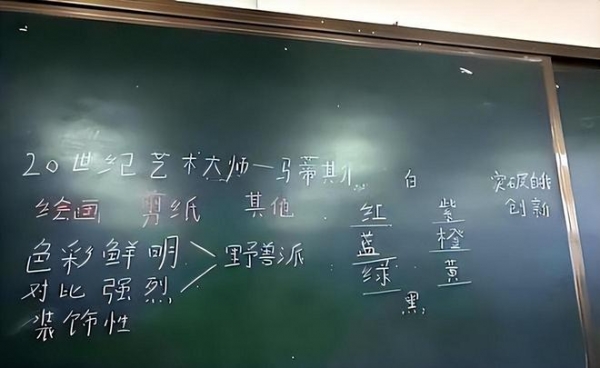 20世纪艺术大师—马蒂斯
绘画 剪纸 其他
色彩鲜明
对比强烈
野兽派
装饰性
白
红 紫
蓝 橙
绿 黄
黑
突破的
创新